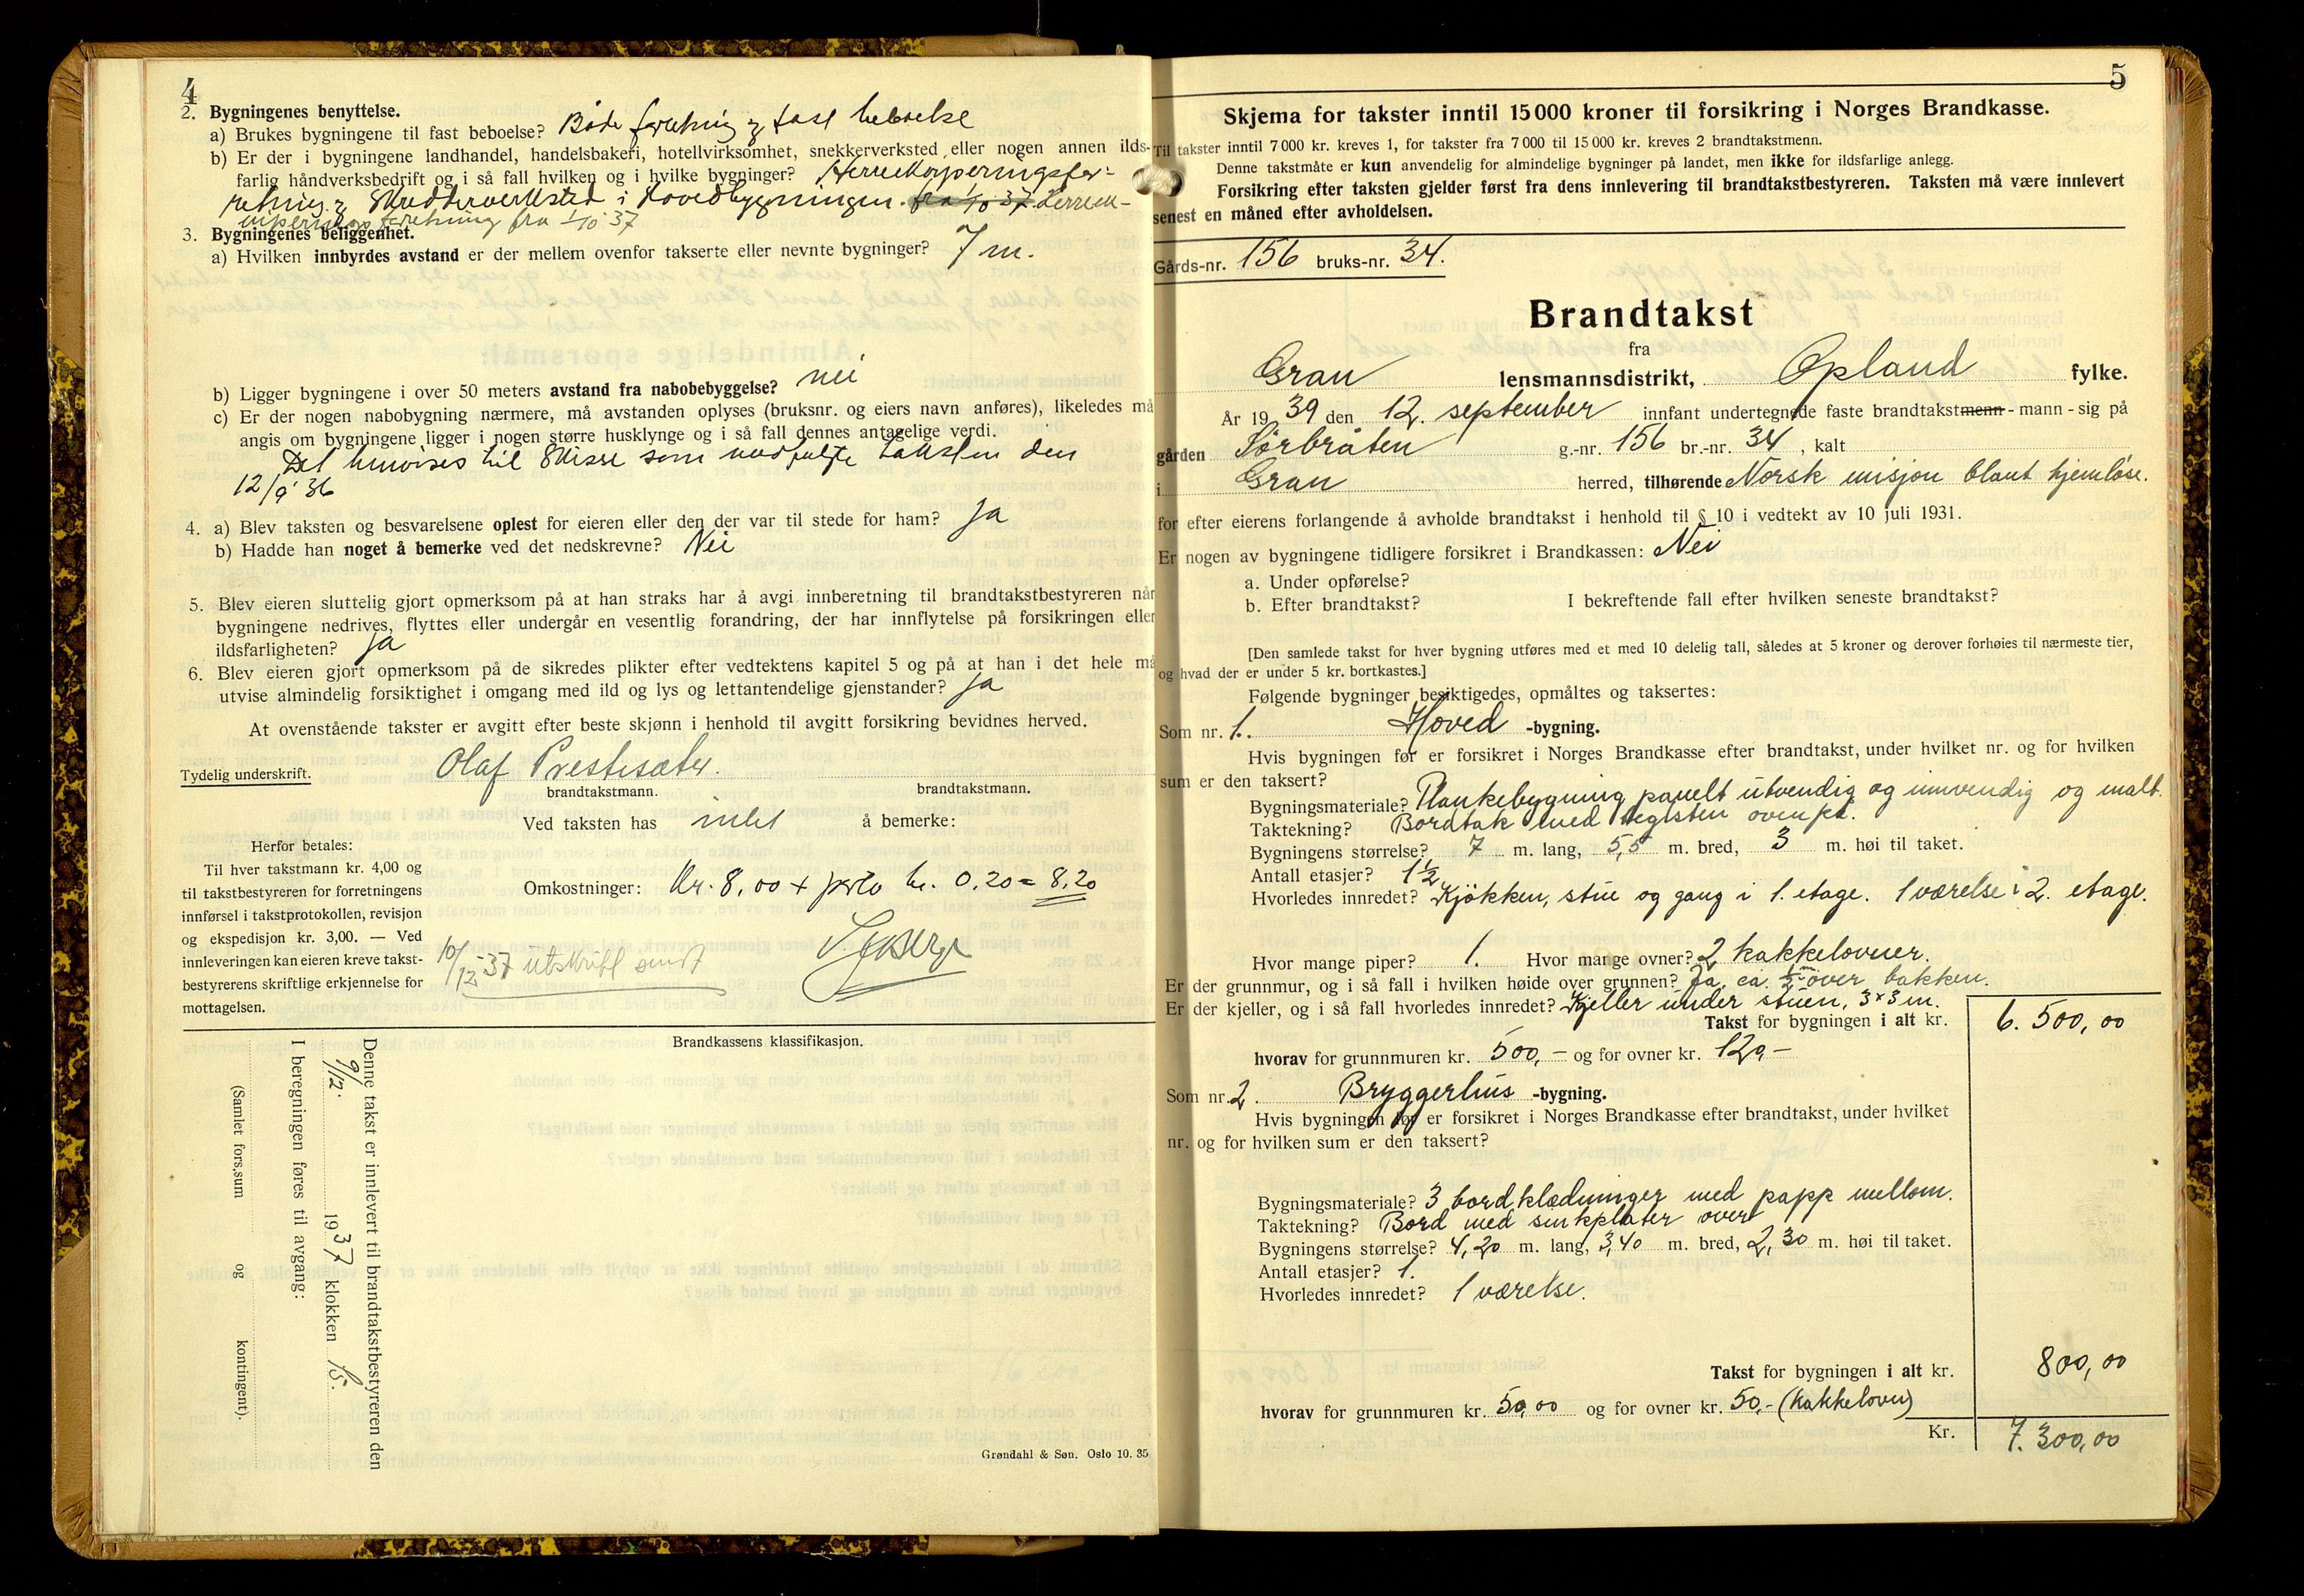 4
2. Bygningenes benyttelse.
a) Brukes bygningene til fast beboelse? Både forretning og fast beboelse
b) Er der i bygningene landhandel, handelsbakeri, hotellvirksomhet, snekkerverksted eller nogen annen ilds-
farlig håndverksbedrift og i så fall hvilken og i hvilke bygninger? Herreekviperingsfor-
retning og Skredderverksted i hovedbygningen. fra 1/10 37. Herreek-
viperingsforretning fra 1/10 37
3. Bygningenes beliggenhet.
a) Hvilken innbyrdes avstand er der mellem ovenfor takserte eller nevnte bygninger? 7 m.
b) Ligger bygningene i over 50 meters avstand fra nabobebyggelse? nei
c) Er der nogen nabobygning nærmere, må avstanden oplyses (bruksnr. og eiers navn anføres), likeledes må
angis om bygningene ligger i nogen større husklynge og i så fall dennes antagelige verdi.
Det henvises til Skisse som medfulgte taksten den
12/9 36
4. a) Blev taksten og besvarelsene oplest for eieren eller den der var til stede for ham? Ja
b) Hadde han noget å bemerke ved det nedskrevne? Nei
5. Blev eieren sluttelig gjort opmerksom på at han straks har å avgi innberetning til brandtakstbestyreren når
bygningene nedrives, flyttes eller undergår en vesentlig forandring, der har innflytelse på forsikringen eller
ildsfarligheten? Ja
6. Blev eieren gjort opmerksom på de sikredes plikter efter vedtektens kapitel 5 og på at han i det hele må
utvise almindelig forsiktighet i omgang med ild og lys og lettantendelige gjenstander? Ja
At ovenstående takster er avgitt efter beste skjønn i henhold til avgitt forsikring bevidnes herved.
Tydelig underskrift. Olaf Prestesæter.
brandtakstmann. brandtakstmann.
Ved taksten has intet å bemerke:
Herfor betales:
Til hver takstmann kr. 4,00 og
til takstbestyreren for forretningens
innførsel i takstprotokollen, revisjon
og ekspedisjon kr. 3,00. — Ved
innleveringen kan eieren kreve takst-
bestyrerens skriftlige erkjennelse for
mottagelsen.
Omkostninger: Kr. 8,00 + porto kr. 0.20 = 8.20
10/12-37 utskrift sendt
Brandkassens klassifikasjon.
Denne takst er innlevert til brandtakstbestyreren den
9/12. 1937 klokken 15.
I beregningen føres til avgang:
(Samlet fors.sum og kontingent).
Grøndahl & Søn. Oslo 10. 35
5
Skjema for takster inntil 15 000 kroner til forsikring i Norges Brandkasse.
Til takster inntil 7 000 kr. kreves 1, for takster fra 7 000 til 15 000 kr. kreves 2 brandtakstmenn.
Denne takstmåte er kun anvendelig for almindelige bygninger på landet, men ikke for ildsfarlige anlegg.
Forsikring efter taksten gjelder først fra dens innlevering til brandtakstbestyreren. Taksten må være innlevert
senest en måned efter avholdelsen.
Gårds-nr. 156 bruks-nr. 34.
Brandtakst
fra
Gran lensmannsdistrikt, Opland fylke.
År 1939 den 12. september innfant undertegnede faste brandtakstmenn - mann - sig på
gården Sørbråten g.-nr. 156 br.-nr. 34, kalt
i Gran herred, tilhørende Norsk misjon blant hjemløse.
for efter eierens forlangende å avholde brandtakst i henhold til § 10 i vedtekt av 10 juli 1931.
Er nogen av bygningene tidligere forsikret i Brandkassen: Nei
a. Under opførelse?
b. Efter brandtakst? I bekreftende fall efter hvilken seneste brandtakst?
[Den samlede takst for hver bygning utføres med et med 10 delelig tall, således at 5 kroner og derover forhøies til nærmeste tier,
og hvad der er under 5 kr. bortkastes.]
Følgende bygninger besiktigedes, opmåltes og taksertes:
Som nr. 1. Hoved -bygning.
Hvis bygningen før er forsikret i Norges Brandkasse efter brandtakst, under hvilket nr. og for hvilken
sum er den taksert?
Bygningsmateriale? Plankebygning panelt utvendig og innvendig og malt.
Taktekning? Bordtak med teglsten ovenpå.
Bygningens størrelse? 7 m. lang, 5,5 m. bred, 3 m. høi til taket.
Antall etasjer? 1½
Hvorledes innredet? Kjøkken, stue og gang i 1. etage. 1 værelse i 2. etage.
Hvor mange piper? 1. Hvor mange ovner? 2 kakkelovner.
Er der grunnmur, og i så fall i hvilken høide over grunnen? Ja, ca. ½ m over bakken.
Er der kjeller, og i så fall hvorledes innredet? Kjeller under stuen, 3 x 3 m.
Takst for bygningen i alt kr. 6.500,00
hvorav for grunnmuren kr. 500,- og for ovner kr. 120,-
Som nr. 2. Bryggerhus -bygning.
Hvis bygningen før er forsikret i Norges Brandkasse efter brandtakst, under hvilket
nr. og for hvilken sum er den taksert?
Bygningsmateriale? 3 bordklædninger med papp mellom.
Taktekning? Bord med sinkplater over
Bygningens størrelse? 4,20 m. lang, 3,40 m. bred, 2,30 m. høi til taket.
Antall etasjer? 1.
Hvorledes innredet? 1 værelse.
Takst for bygningen i alt kr. 800,00
hvorav for grunnmuren kr. 50,00 og for ovner kr. 50,- (kakkelovn)
Kr. 7.300,00